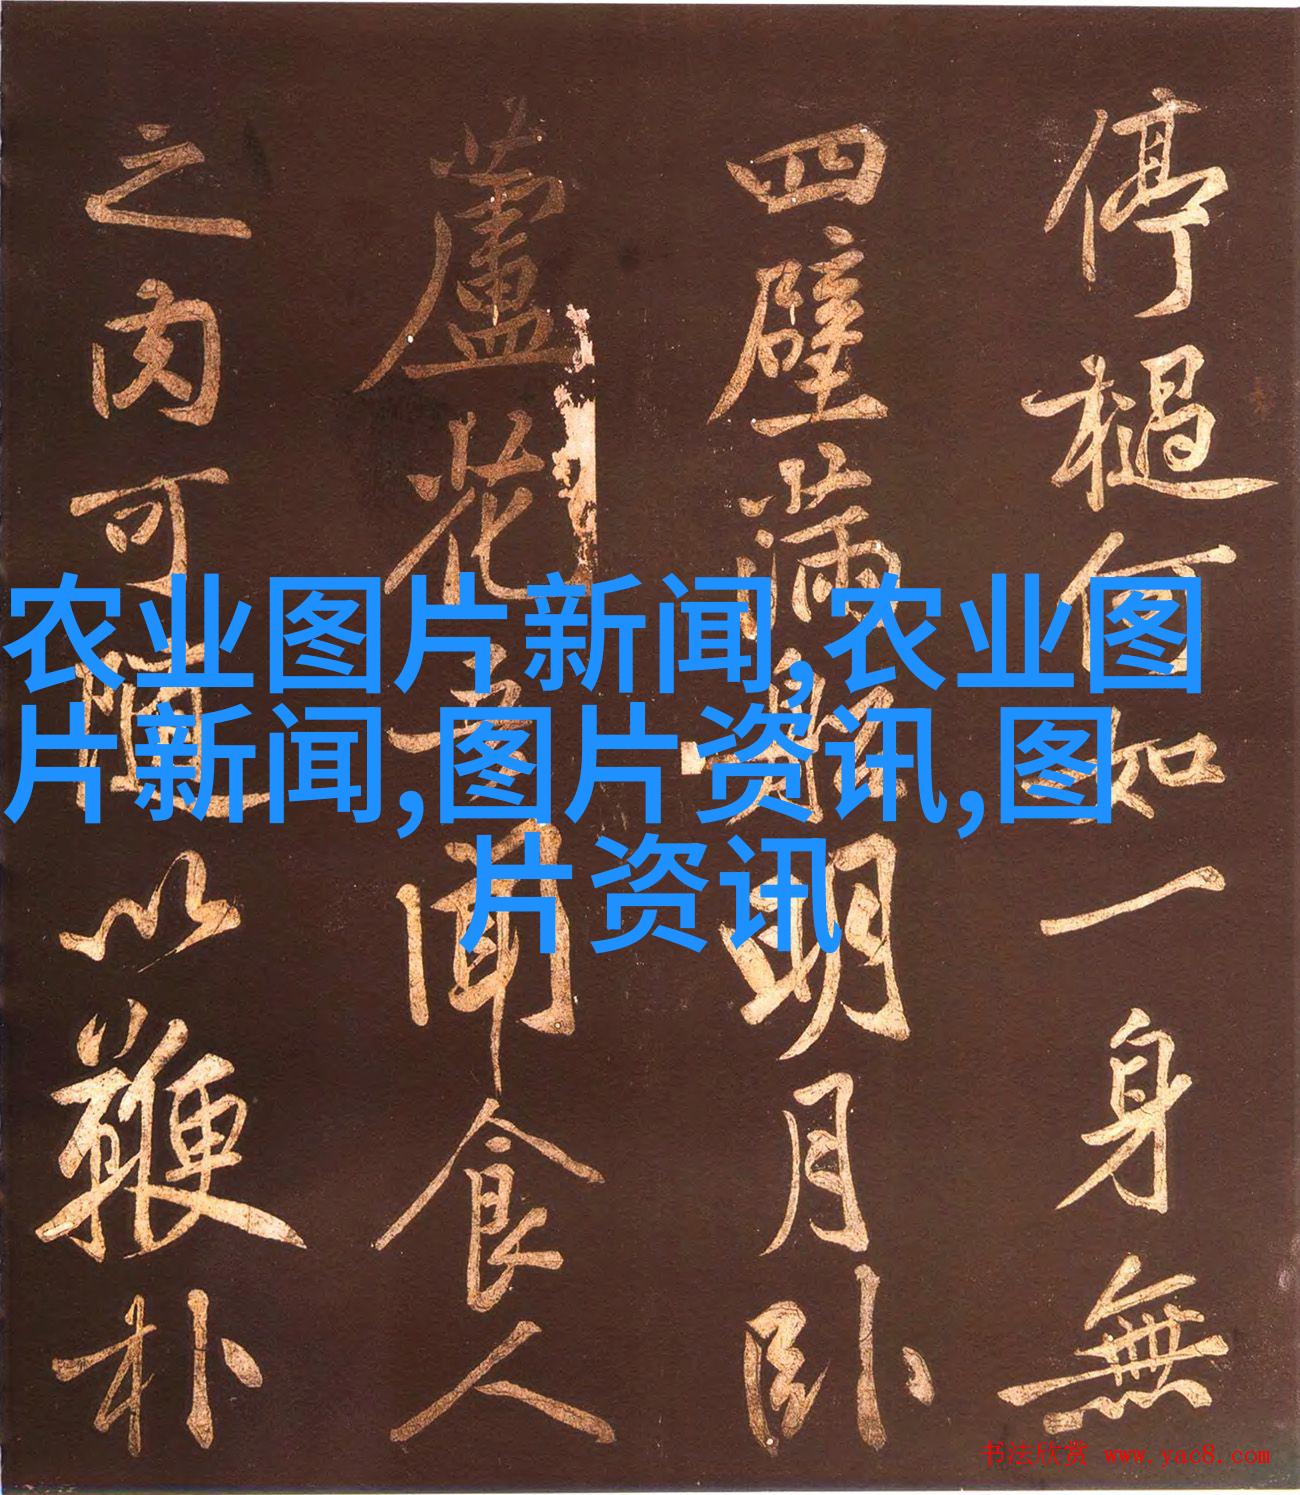 停檛何如一身無
四壁滿船明月卧
蘆花吾聞食人
之肉可隨以鞭朴
农业图片新闻,农业图
片新闻,图片资讯,图
片资讯
书法欣赏 www.yac8.com